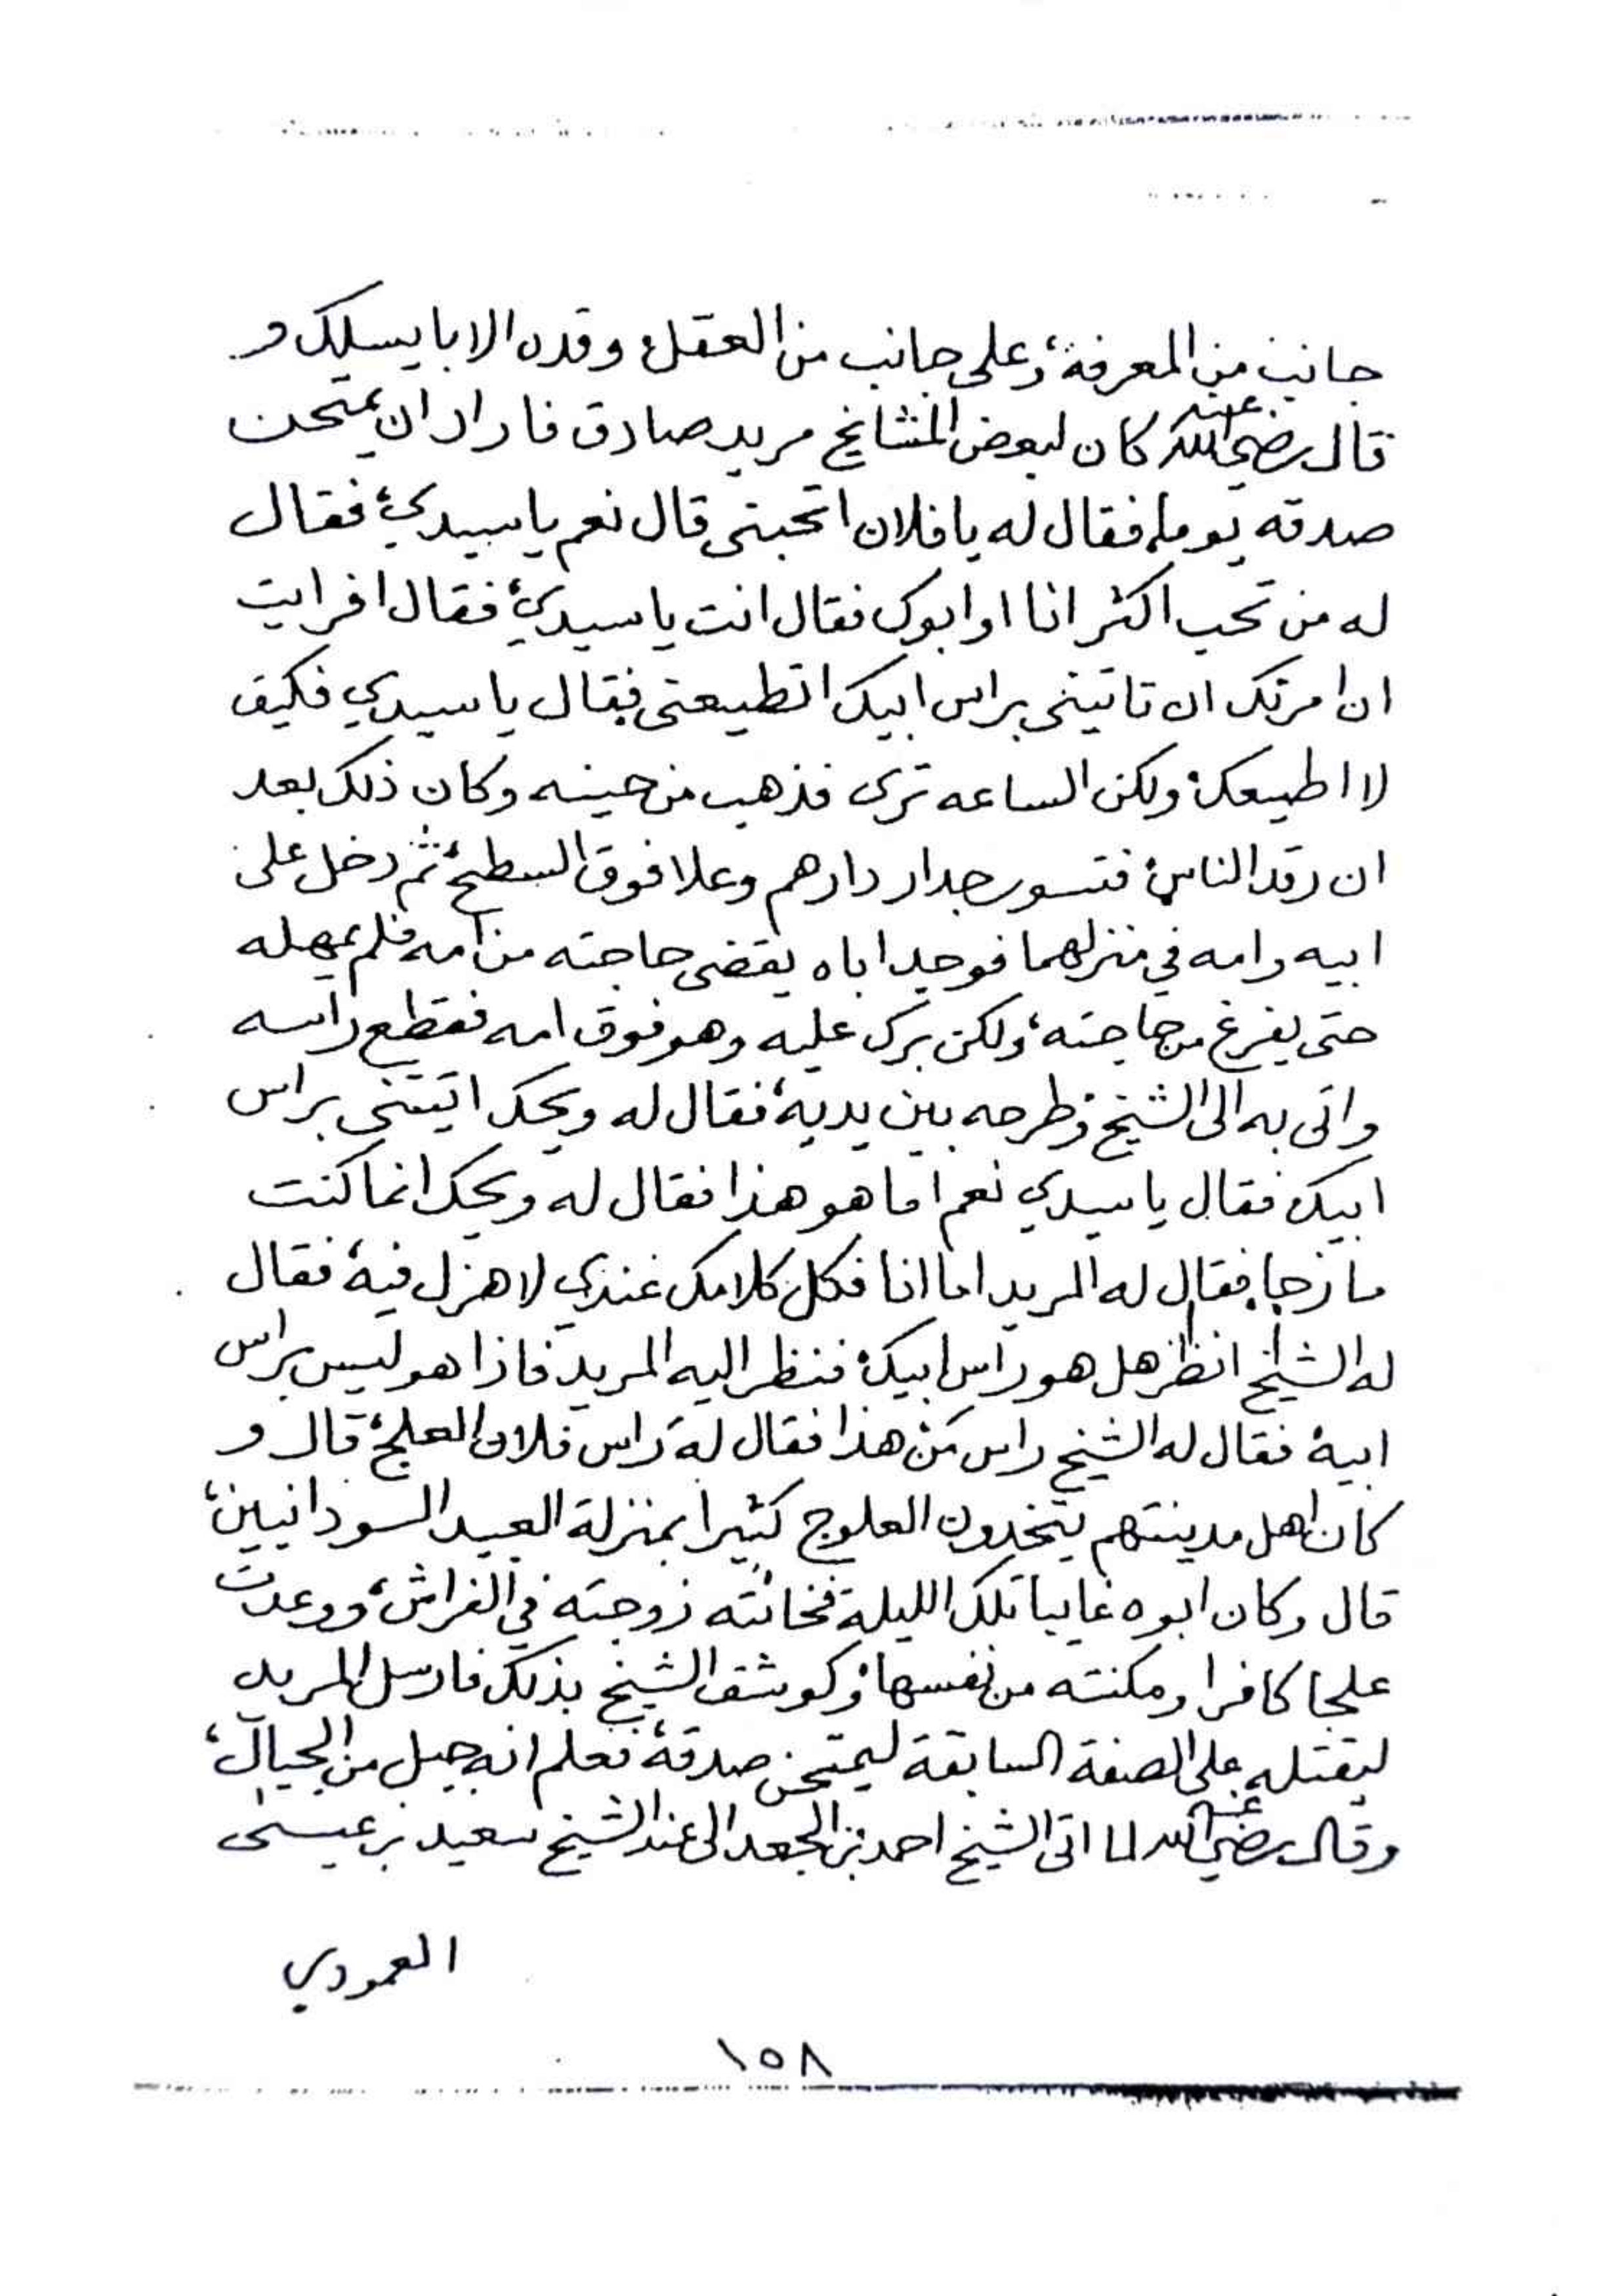 جانب من المعرفة، وعلى جانب من العقل، وقده الا با يسلك و
قال رضي الله عنه كان لبعض المشايخ مريد صادق فاراد ان يمتحن
صدقه يوما، فقال له يا فلان اتحبنى قال نعم يا سيدي، فقال
له من تحب اكثر انا او ابوك فقال انت يا سيدي، فقال افرايت
ان امرتك ان تاتينى براس ابيك اتطيعنى فقال يا سيدي فكيف
لا اطيعك، ولكن الساعه ترى فذهب من حينه وكان ذلك بعد
ان رقد الناس، فتسور جدار دارهم وعلا فوق السطح، ثم دخل على
ابيه وامه في منزلهما فوجد اباه يقضى حاجته من امه فلم يمهله
حتى يفرغ من حاجته، ولكن برك عليه وهو فوق امه فقطع راسه
واتى به الى الشيخ وطرحه بين يديه، فقال له ويحك اتيتنى براس
ابيك فقال يا سيدي نعم اما هو هذا فقال له ويحك انما كنت
مازحا، فقال له المريد اما انا فكل كلامك عندي لا هزل فيه، فقال
له الشيخ انظر هل هو راس ابيك، فنظر اليه المريد فاذا هو ليس براس
ابيه، فقال له الشيخ راس من هذا فقال له راس فلان العلج، قال و
كان اهل مدينتهم يتخذون العلوج كثيرا بمنزلة العبيد السودانيين،
قال وكان ابوه غايبا تلك الليلة فخانته زوجته في الفراش، ووعدت
علجا كافرا ومكنته من نفسها، وكوشف الشيخ بذلك فارسل المريد
ليقتله على الصفة السابقة ليمتحن صدقه، فعلم انه جبل من الجبال،
وقال رضي الله عنه لما اتى الشيخ احمد بن الجعد الى عند الشيخ سعيد بن عيسى
العمودي
١٥٨